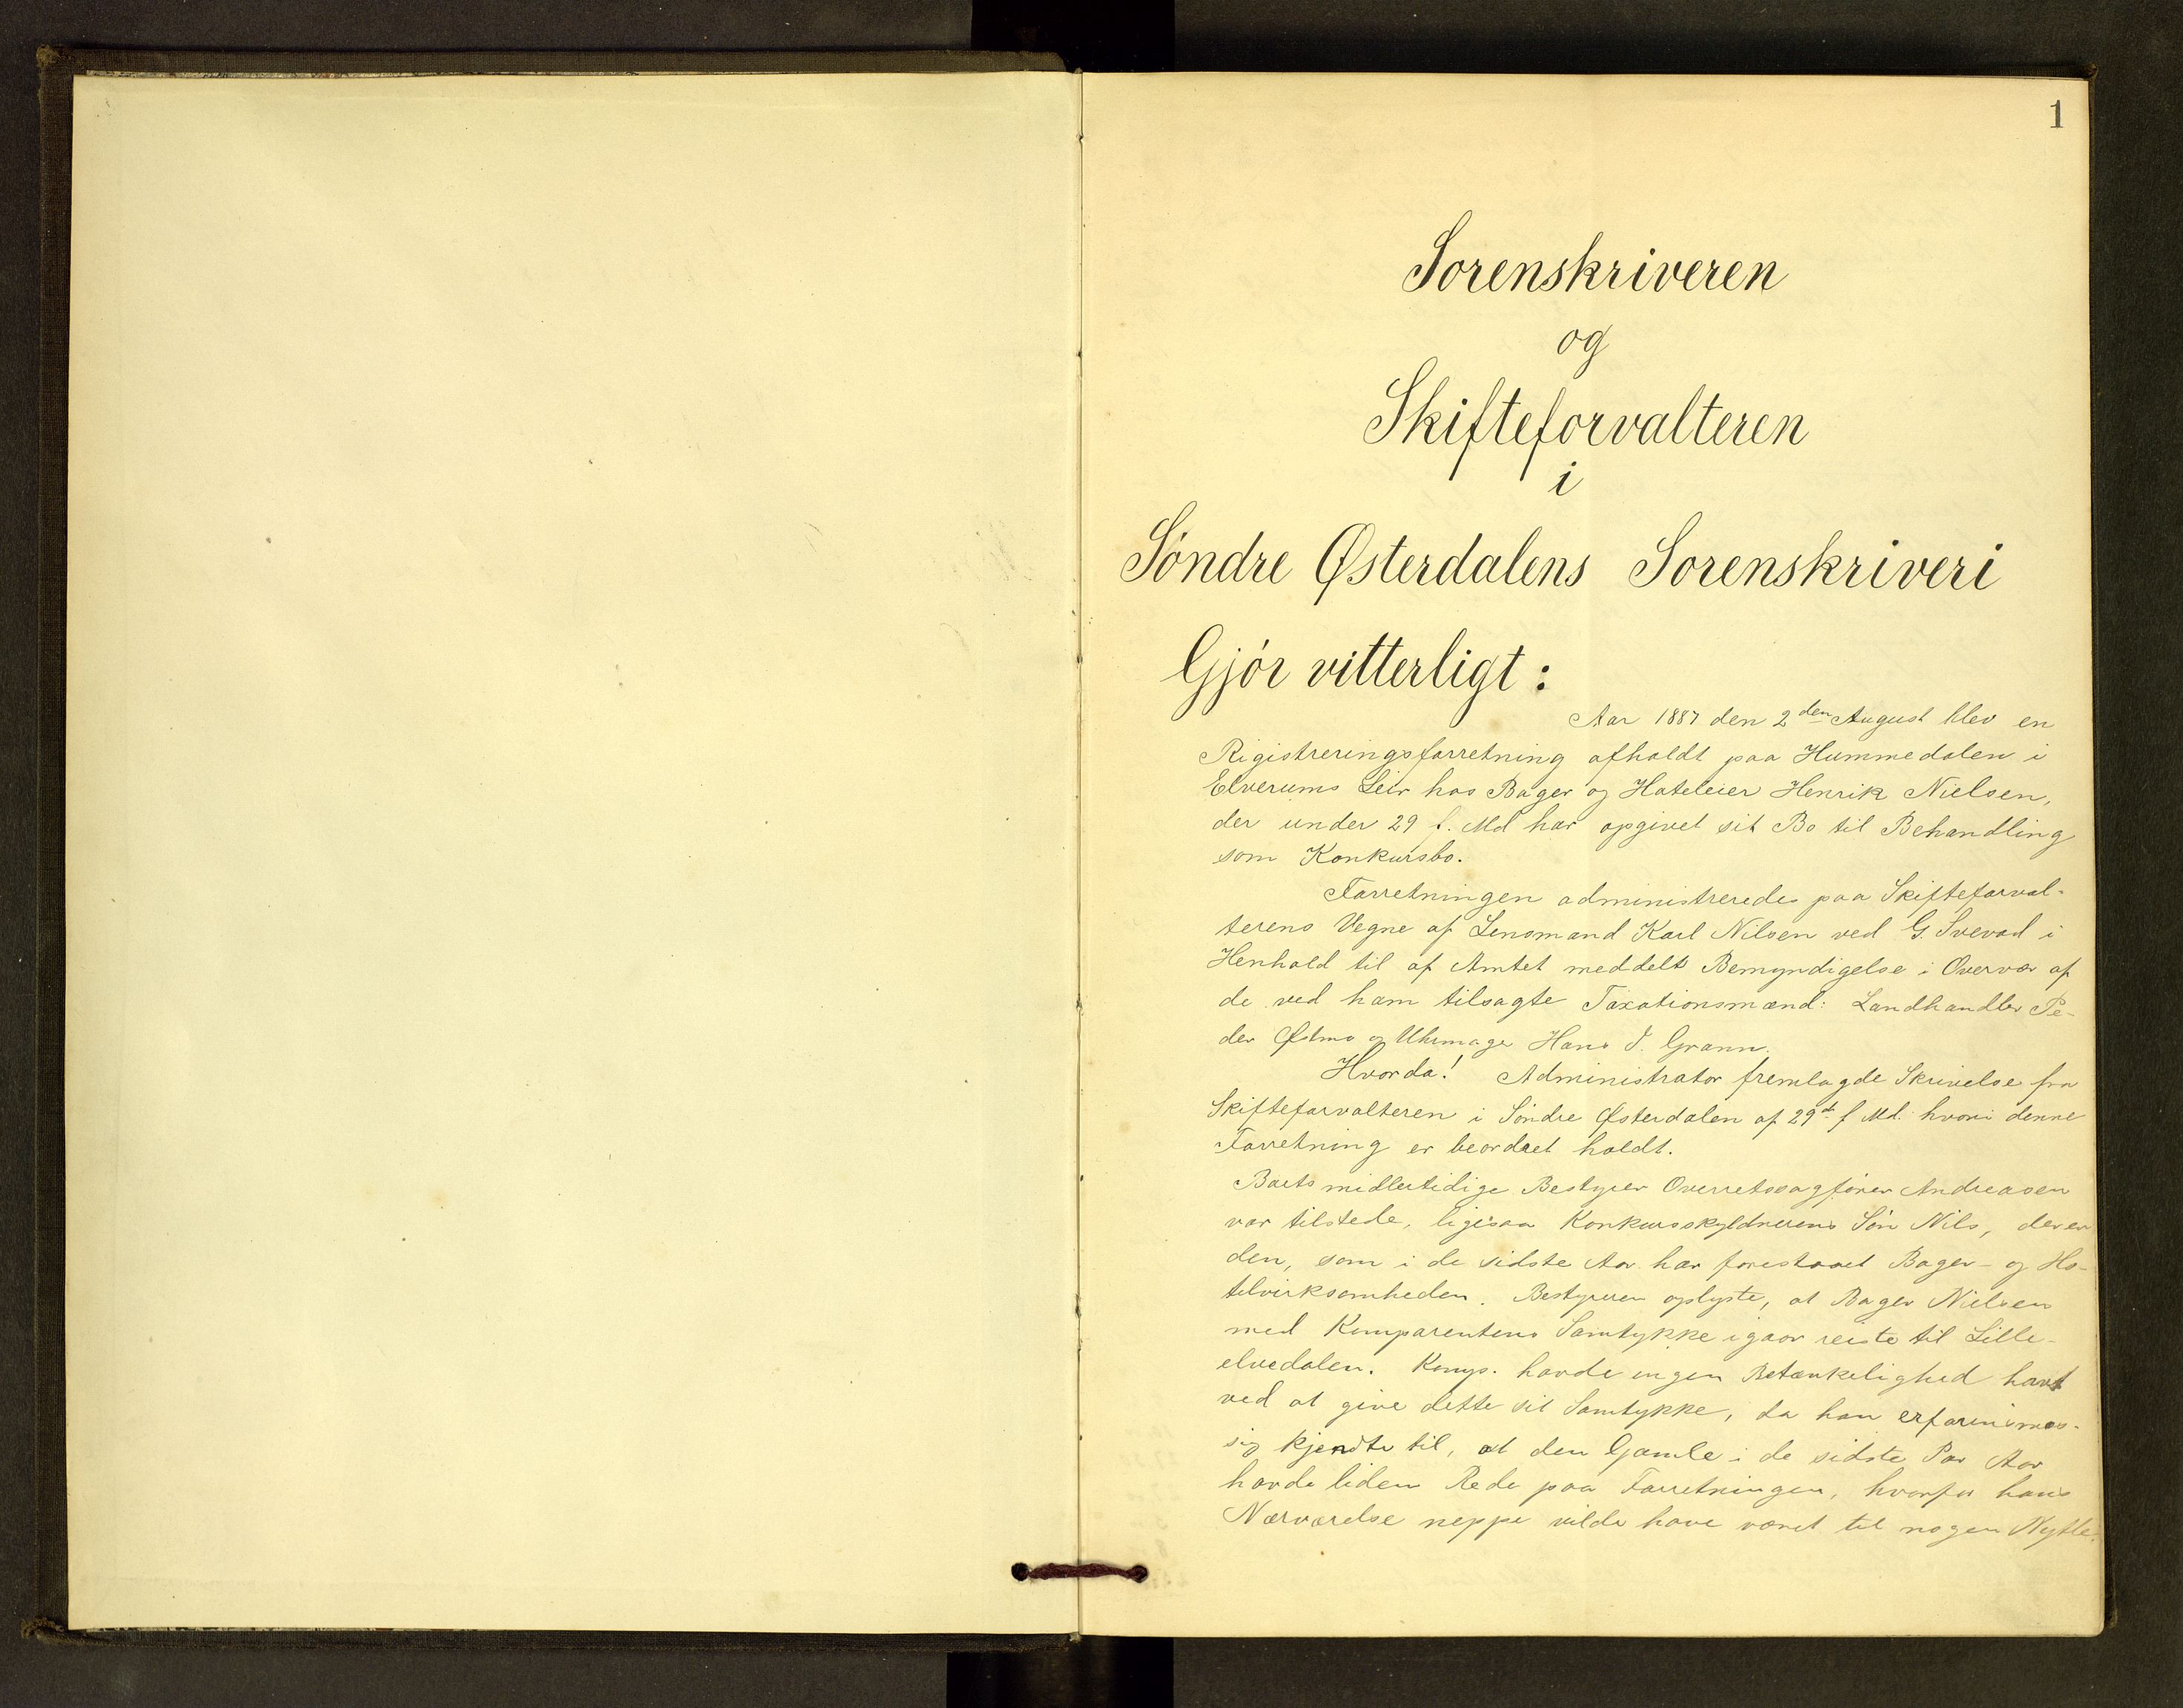 1
Sorenskriveren
og
Skifteforvalteren
i
Söndre Østerdalens Sorenskriveri
Gjör vitterligt:
Aar 1887 den 2den August blev en
Rigistreringsforretning afholdt paa Hummedalen i
Elverums Leir hos Bager og Hoteleier Henrik Nielsen,
der under 29 f. Md har opgivet sit Bo til Behandling
som Konkursbo.
Forretningen administreredes paa Skifteforval-
terens Vegne af Lensmand Karl Nilsen ved G. Svevad i
Henhold til af Amtet meddelt Bemyndigelse i Overvær af
de ved ham tilsagte Taxationsmænd: Landhandler Pe-
der Østmo og Uhrmager Hans J. Grann.
Hvorda! Administrator fremlagde Skrivelse fra
Skifteforvalteren i Söndre Østerdalen af 29de f. Md. hvori denne
Forretning er beordret holdt.
Boets midlertidige Bestyrer Overretssagfører Andreasen
var tilstede, ligesaa Konkursskyldnerens Sön Nils, der er
den, som i de sidste Aar har forestaaet Bager- og Ho-
telvirksomheden. Bestyreren oplyste, at Bager Nielsen
med Komparentens Samtykke igaar reiste til Lille-
elvedalen. Komp. havde ingen Betænkelighed havt
ved at give dette sit Samtykke, da han erfaringsmæs-
sig kjendte til, at den Gamle i de sidste Par Aar
havde liden Rede paa Forretningen, hvorfor hans
Nærværelse neppe vilde have været til nogen Nytte.